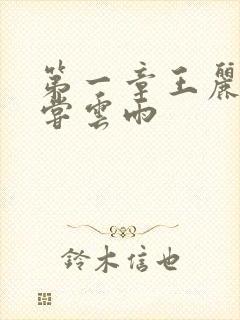 第一章王麗
嘗雲雨
鈴木信也